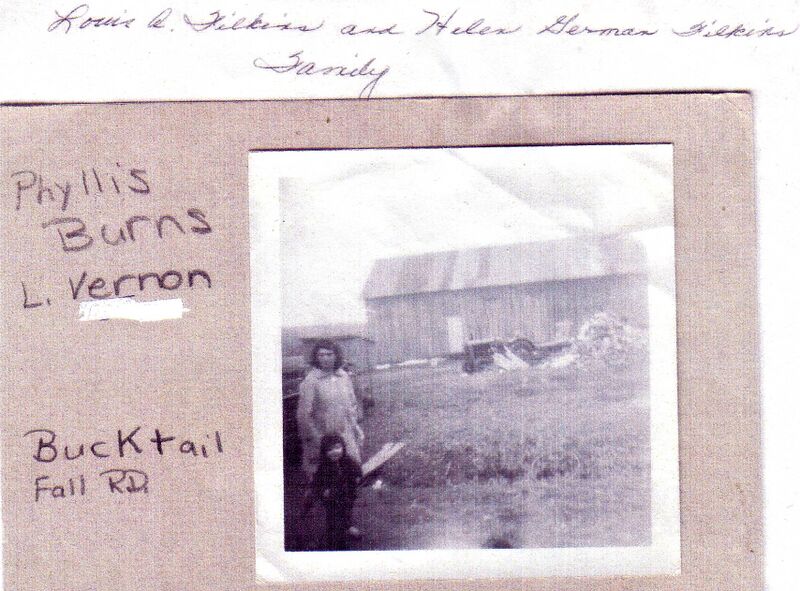 Louis A. Filkins and Helen German Filkins
Family
Phyllis
Burns
L. Vernon
Bucktail
Fall RD.